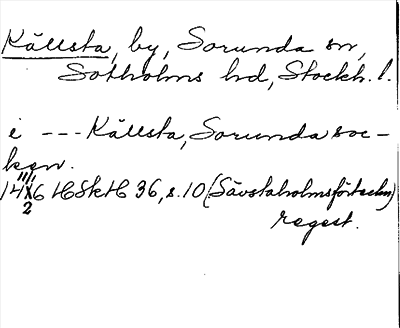 Källsta, by, Sorunda sn,
Sotholms hd, Stockh. l.
i --- Källsta, Sorunda soc-
ken.
14 6 HSkH 36, s. 10 (Sävstaholmsförteckn)
2
regest.